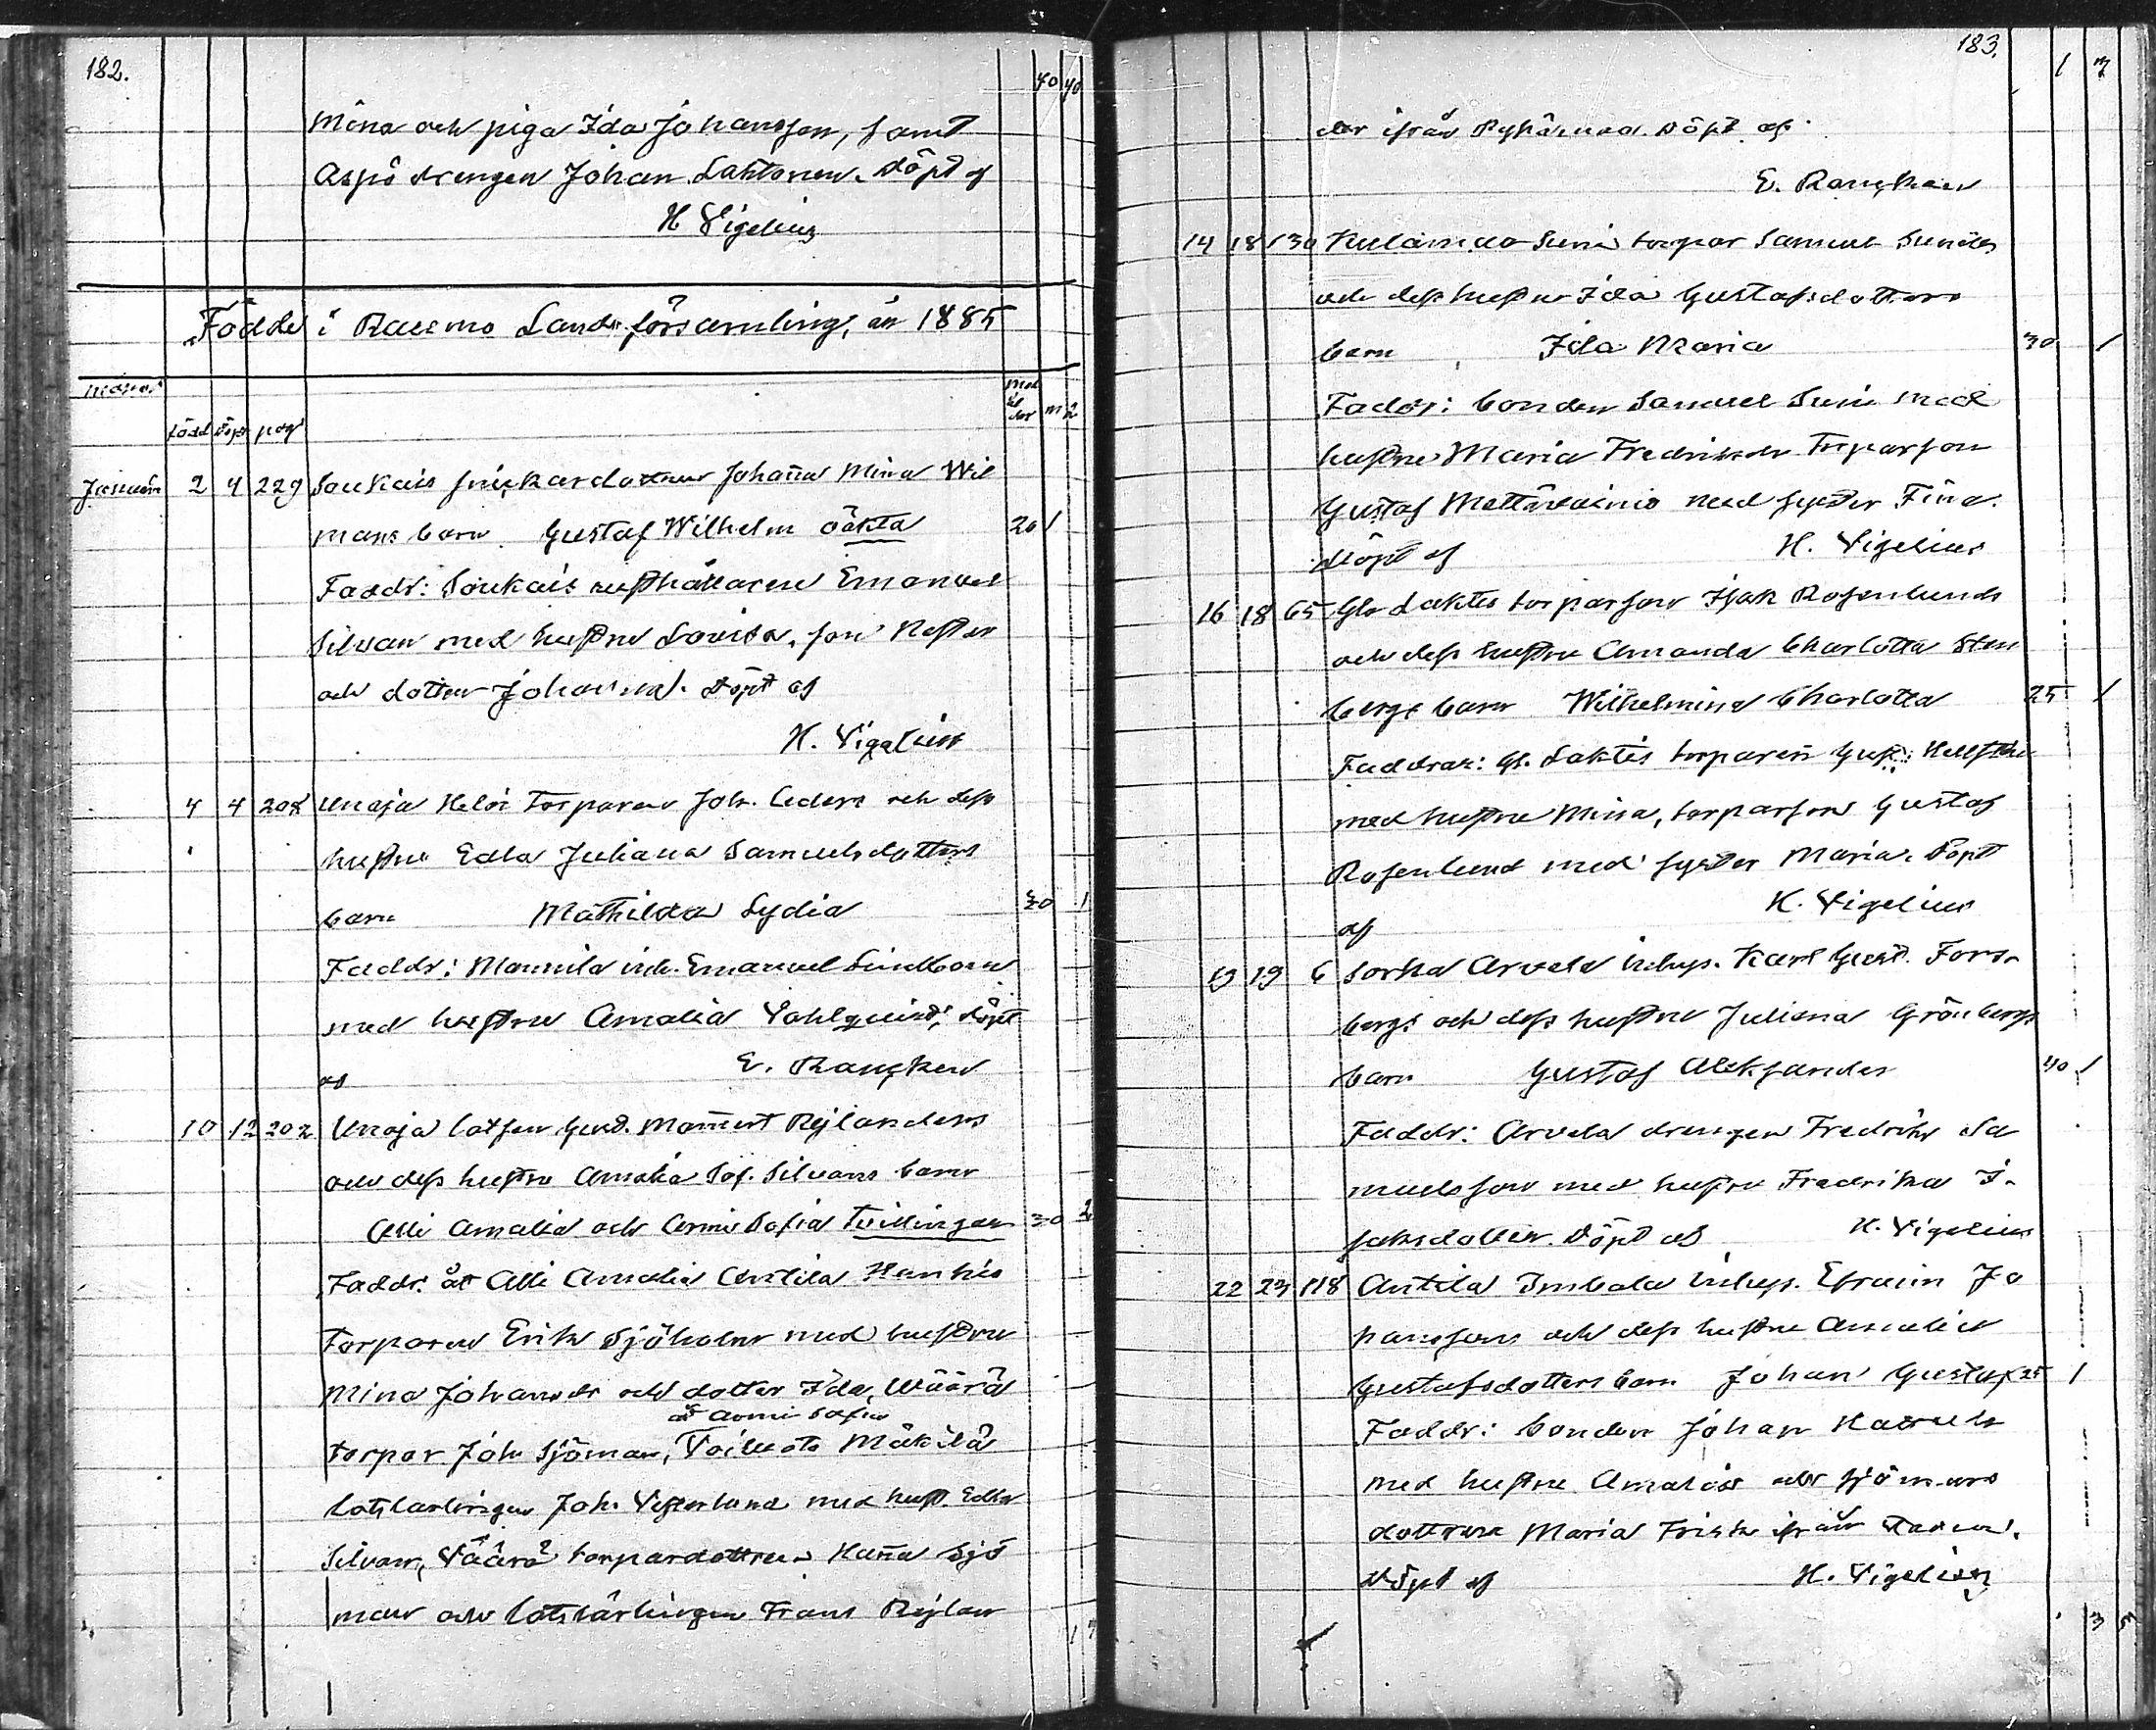 182.
40 40
Mina och piga Ida Johansson, samt
Aspö drengen Johan Laktonen. Döpt af
H Vigelius
Födde i Raumo Lands församling, år 1885
Månad
född döpt pag
mod ål der
m q
Januari 2 4 229 Soukais snickardottren Johana Mina Wil
mans barn Gustaf Wilhelm oäkta 20 1
Faddr: Soukais rusthållaren Emanuel
Silvan med hustru Lovisa, son Nestor
och dotter Johanna. Döpt af
H. Vigelius
4 4 208 Unaja Helöi Torparen Joh. Ceders och dess
hustru Edla Juliana Samuelsdotters
barn Mathilda Lydia 30 1
Faddr: Monnila inh. Emanuel Lindbom
med hustru Amalia Vahlquist, döpt
af E. Rancken
10 12 202 Unaja lotsen Gust. Mom̄ert Rejlanders
och dess hustru Amalia Sof. Silvans barn
Alli Amalia och Armi Sofia Tvillingar 30 2
Faddr. åt Alli Amalia Anttila Hankis
Torparen Erik Sjöholm med hustru
Mina Johansdr och dotter Ida, Wäärä
åt Armi Sofia
torpar Joh Sjöman, Voiluoto Mäkilä
lotslärlingen Joh. Vesterlund med hust Edla
Silvan, Väärä torpardottren Han̄a Sjö
man och lotslärlingen Frans Rejlan
1 7
183.
1 7
der ifrån Pyhämaa. Döpt af
E. Rancken
14 18 130 Kulamaa Suni torpar Samuel Sunéls
och dess hustru Ida Gustafsdotters
barn Ida Maria 30 1
Faddr: bonden Samuel Suni med
hustru Maria Fredriksdr Torparson
Gustaf Mattävainio med syster Fina.
Döpt af H. Vigelius
16 18 65 Gl. Laktis torparson Isak Rosenlunds
och dess hustru Amanda Charlotta Sten
bergs barn Wilhelmina Charlotta 25 1
Faddrar: Gl. Laktis torparen Gust:
med hustru Mina, torparson Gustaf
Rosenlund med syster Maria. Döpt
af H. Vigelius
19 19 6 Sorka Arvela inhys. Karl Gust. Fors-
bergs och dess hustru Juliana Grönbergs
barn Gustaf Aleksander 40 1
Faddr: Arvela drengen Fredrik Sa
muelsson med hustru Fredrika I-
saksdotter. Döpt af H. Vigelius
22 23 118 Anttila Imbala inhys. Efraim Jo
hanssons och dess hustru Amalia
Gustafsdotters barn Johan Gustaf 25 1
Faddr: bonden Johan
med hustru Amalia och sjömans
dottren Maria Frisk ifrån
Döpt af H. Vigelius
3 5